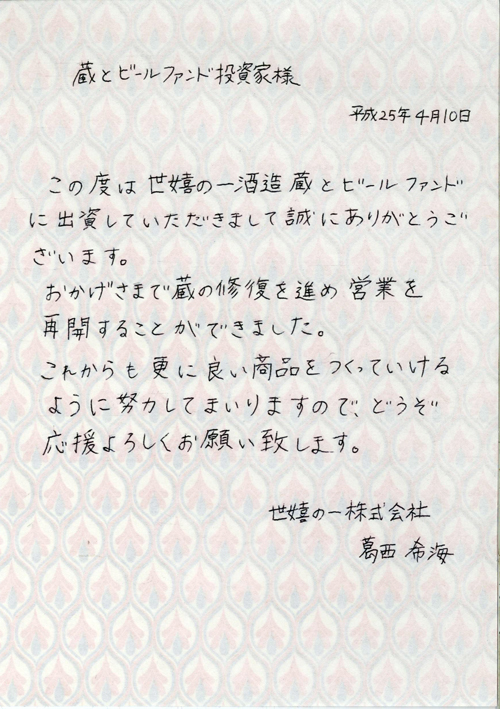 蔵とビールファンド投資家様
平成25年4月10日
この度は世嬉の一酒造 蔵とビールファンド
に出資していただきまして誠にありがとうご
ざいます。
おかげさまで蔵の修復を進め 営業を
再開することができました。
これからも更に良い商品をつくっていける
ように努力してまいりますので、どうぞ
応援よろしくお願い致します。
世嬉の一株式会社
葛西 希海